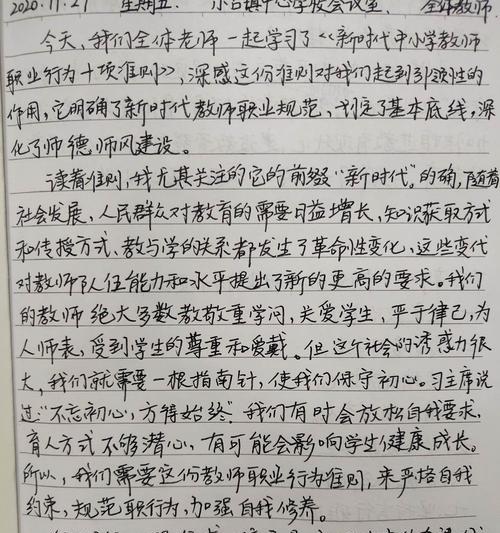 2020.11.27 星期五. 小台镇中心学校会议室. 全体教师.
今天,我们全体老师一起学习了《新时代中小学教师
职业行为十项准则》,深感这份准则对我们起到引领性的
作用,它明确了新时代教师职业规范,划定了基本底线,深
化了师德师风建设。
读着准则,我尤其关注的它的前缀“新时代”。的确,随着
社会发展,人民群众对教育的需要日益增长,知识获取方式
和传授方式、教与学的关系都发生了革命性变化,这些变化
对教师队伍能力和水平提出了新的更高的要求。我们
的教师绝大多数敬重学问,关爱学生,严于律己,为
人师表,受到学生的尊重和爱戴。但这个社会的诱惑力很
大,我们就需要一根指南针,使我们保守初心。习主席说
过:“不忘初心,方得始终”.我们有时会放松自我要求,
育人方式不够潜心,有可能会影响学生健康成长。
所以,我们需要这份教师职业行为准则,来严格自我
约束,规范职行为,加强自我修养。